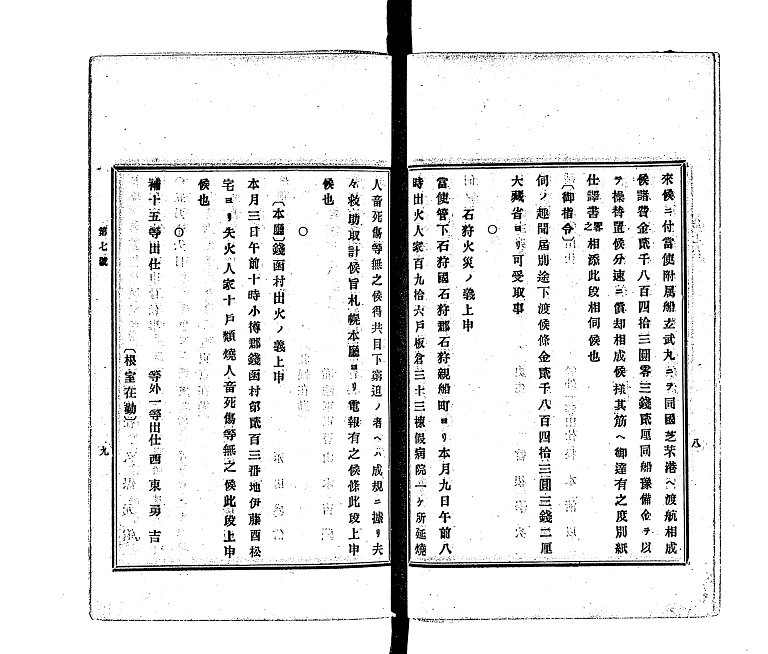 來候ニ付當使附属船玄武丸ニテ同國芝罘港ヘ渡航相成
候諸費金貳千八百四拾三圓零三錢貳厘同船豫備金ヲ以
テ操替置候分速ニ償却相成候樣其筋ヘ御達有之度別紙
仕譯書畧之相添此段相伺候也
〔御指令〕
伺ノ趣聞届別途下渡候條金貳千八百四拾三圓三錢二厘
大藏省ヨリ可受取事
○
石狩火災ノ義上申
當使管下石狩國石狩郡石狩親船町ヨリ本月九日午前八
時出火人家百九拾六戸板倉三十三棟假病院一ケ所延燒
八
人音死傷等無之候得共目下窮迫ノ者ヘハ成規ニ據リ夫
々救助取計候旨札幌本廳ヨリ電報有之候條此段上申
候也
○
〔本廳〕錢函村出火ノ義上申
本月三日午前十時小樽郡錢函村郁貳百三番地伊藤酉松
宅ヨリ失火人家十戸類燒人音死傷等無之候此段上申
候也
○
補十五等出仕 等外一等出仕西東勇吉
〔根室在勤〕
第七號
九